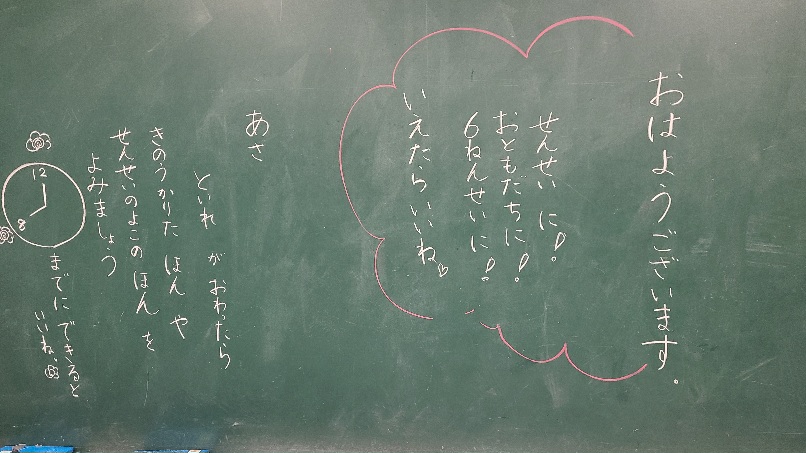 おはようございます。
せんせいに!
おともだちに!
6ねんせいに!
いえたらいいね
あさ
といれ がおわったら
きのうかりた ほん や
せんせいのよこの ほん を
よみましょう
12
8
までにできると
いいね。